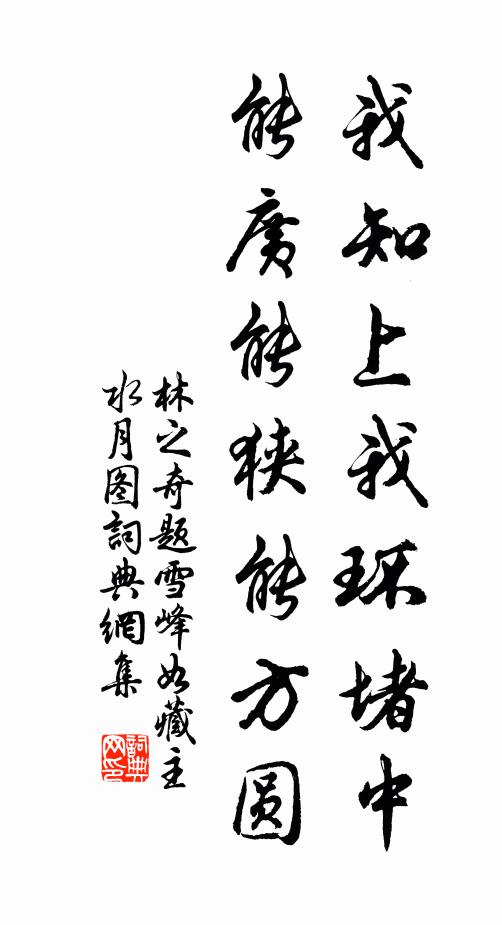 我知上我环堵中
能廣能狹能方圆
林之奇题雪峰如藏主
水月图詞典網集
詞典网印